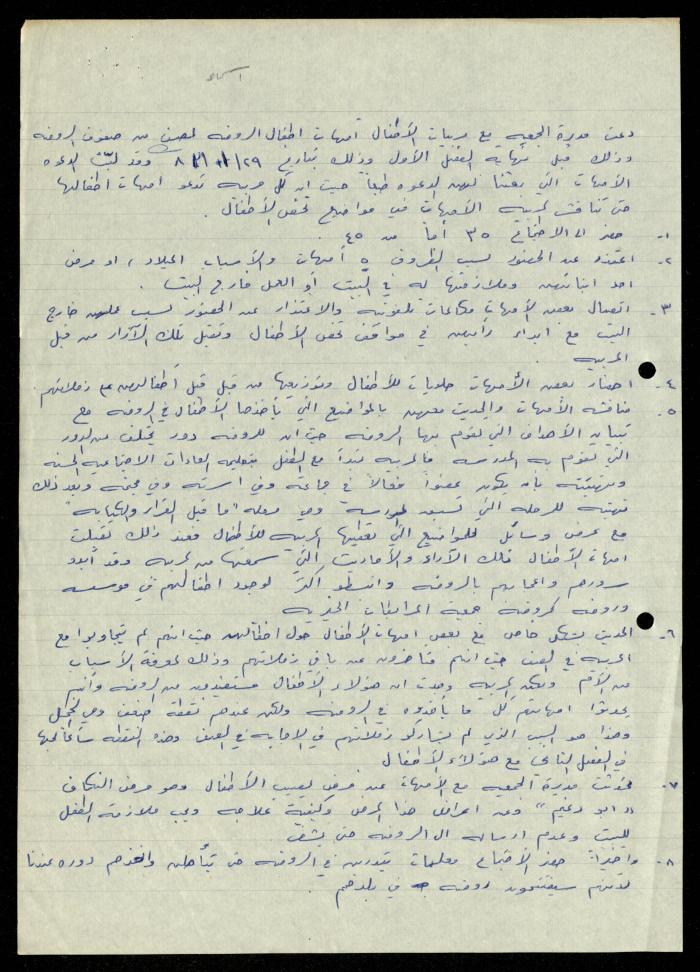 اسماء
دعت مديرة الجمعيه مع مربيات الأطفال أمهات اطفال الروضه لصف من صفوف الروضه
وذلك قبل نهاية الفصل الأول وذلك بتاريخ ٢٩/ وقد لبّت الدعوه
الأمهات التي بعثنا لهن الدعوه طبعاً حيث ان كل مربيه تدعو امهات اطفالها
حتى تناقش المربيه الأمهات في مواضيع تخص الأطفال .
١- حضر الى الاجتماع ٣٥ أماً من ٤٥
٢- اعتذر عن الحضور لسبب الظروف ٥ أمهات والأسباب الميلاد ، او مرض
احد ابنائهن وملازمتها له في البيت أو العمل خارج البيت .
٣- اتصال بعض الأمهات مكالمات تلفونيه والاعتذار عن الحضور لسبب عملهن خارج
البيت مع ابداء رأيهن في مواقف تخص الأطفال وتقبل تلك الآراء من قبل
المربيه .
٤- احضار بعض الأمهات حلويات للأطفال وتوزيعها من قبل أطفالهن على زملائهم
٥- مناقشة الأمهات والحديث معهن بالمواضيع التي يأخذها الأطفال في الروضه مع
تبيان الأهداف التي تقوم بها الروضه حيث ان للروضه دور يختلف عن الدور
التي تقوم به المدرسه فالمربيه تبدأ مع الطفل بتعليمه العادات الاجتماعيه الحسنه
وتهيئته بأن يكون عضواً فعالاً في جماعته وفي اسرته وفي مجتمعه وبعد ذلك
تهيئه للمرحله التي تسبق المدرسه وهي مرحله "ما قبل القراءه والكتابه"
مع عرض وسائل للمواضيع التي تعطيها المربيه للأطفال فعند ذالك تقبلت
امهات الأطفال تلك الآراء والأحاديث التي سمعتها من المربيه وقد أبدو
سرورهم واعجابهم بالروضه وانبسطو اكثر لوجود اطفالهم في مؤسسه
وروضه كروضه جمعية المرابطات الخيريه
٦- الحديث بشكل خاص مع بعض امهات الأطفال حول اطفالهن حيث انهم لم يتجاوبوا مع
المربيه في الصف حيث انهم متأخرون عن باقي زملائهم وذلك لمعرفة الأسباب
من الأم ولكن المربيه وجدت ان هؤلاء الأطفال مستفيدون من الروضه وأنهم
يحدثوا امهاتهم كل ما يأخذوه في الروضه ولكن عندهم نقطة ضعف وهي الخجل
وهذا هو السبب الذي لم يشاركو زملائهم في الاجابه في الصف وهذه النقطه سأعالجها
في الفصل الثاني مع هؤلاء الأطفال
٧- تحدثت مديرة الجمعيه مع الأمهات عن مرض يصيب الأطفال وهو مرض النكاف
"ابو دغيم" وعن اعراض هذا المرض وكيفية علاجه ويجب ملازمة الطفل
للبيت وعدم ارساله الى الروضه حتى يشفى
٨- واخيراً حضر الاجتماع معلمات يتدربن في الروضه من واخذهم دوره عندنا
لأنهم سيفتتحون روضه في بلدهم